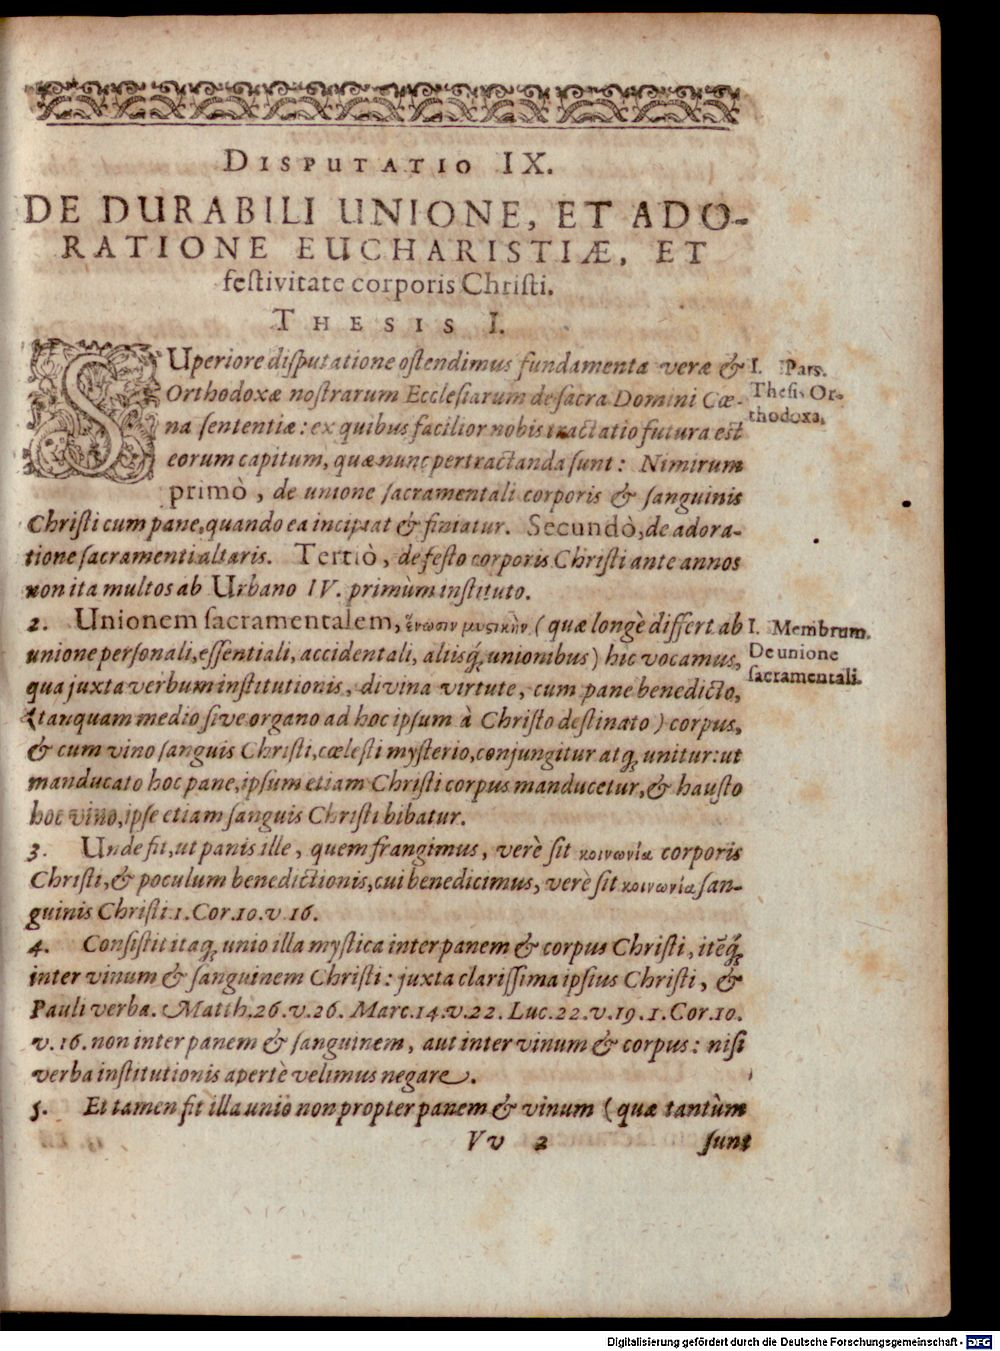 DISPUTATIO IX.
DE DURABILI UNIONE, ET ADO-
RATIONE EUCHARISTIÆ, ET
festivitate corporis Christi.
THESIS I.
SUperiore disputatione ostendimus fundamenta veræ &
Orthodoxæ nostrarum Ecclesiarum de sacra Domini Cœ-
na sententiæ: ex quibus facilior nobis tractatio futura est
eorum capitum, quæ nunc pertractanda sunt: Nimirum
primò, de unione sacramentali corporis & sanguinis
Christi cum pane, quando ea incipiat & finiatur. Secundò, de adora-
tione sacramenti altaris. Tertiò, de festo corporis Christi ante annos
non ita multos ab Urbano IV. primùm instituto.
I. Pars.
Thesis Or-
thodoxa.
2. Unionem sacramentalem, ἕνωσιν μυστικὴν (quæ longè differt ab
unione personali, essentiali, accidentali, aliisq́; unionibus) hic vocamus,
qua juxta verbum institutionis, divina virtute, cum pane benedicto,
(tanquam medio sive organo ad hoc ipsum à Christo destinato) corpus,
& cum vino sanguis Christi, cœlesti mysterio, conjungitur atq; unitur: ut
manducato hoc pane, ipsum etiam Christi corpus manducetur, & hausto
hoc vino, ipse etiam sanguis Christi bibatur.
I. Membrum.
De unione
sacramentali.
3. Unde fit, ut panis ille, quem frangimus, verè sit κοινωνία corporis
Christi, & poculum benedictionis, cui benedicimus, verè sit κοινωνία san-
guinis Christi 1. Cor. 10. v. 16.
4. Consistit itaq; unio illa mystica inter panem & corpus Christi, itēq́;
inter vinum & sanguinem Christi: juxta clarissima ipsius Christi, &
Pauli verba. Matth. 26. v. 26. Marc. 14. v. 22. Luc. 22. v. 19. 1. Cor. 10.
v. 16. non inter panem & sanguinem, aut inter vinum & corpus: nisi
verba institutionis apertè velimus negare.
5. Et tamen fit illa unio non propter panem & vinum (quæ tantùm
Vv 2 sunt
Digitalisierung gefördert durch die Deutsche Forschungsgemeinschaft - DFG